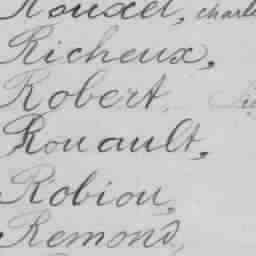 Rouxel, charl
Richeux,
Robert
Rouault,
Robiou,
Remond,